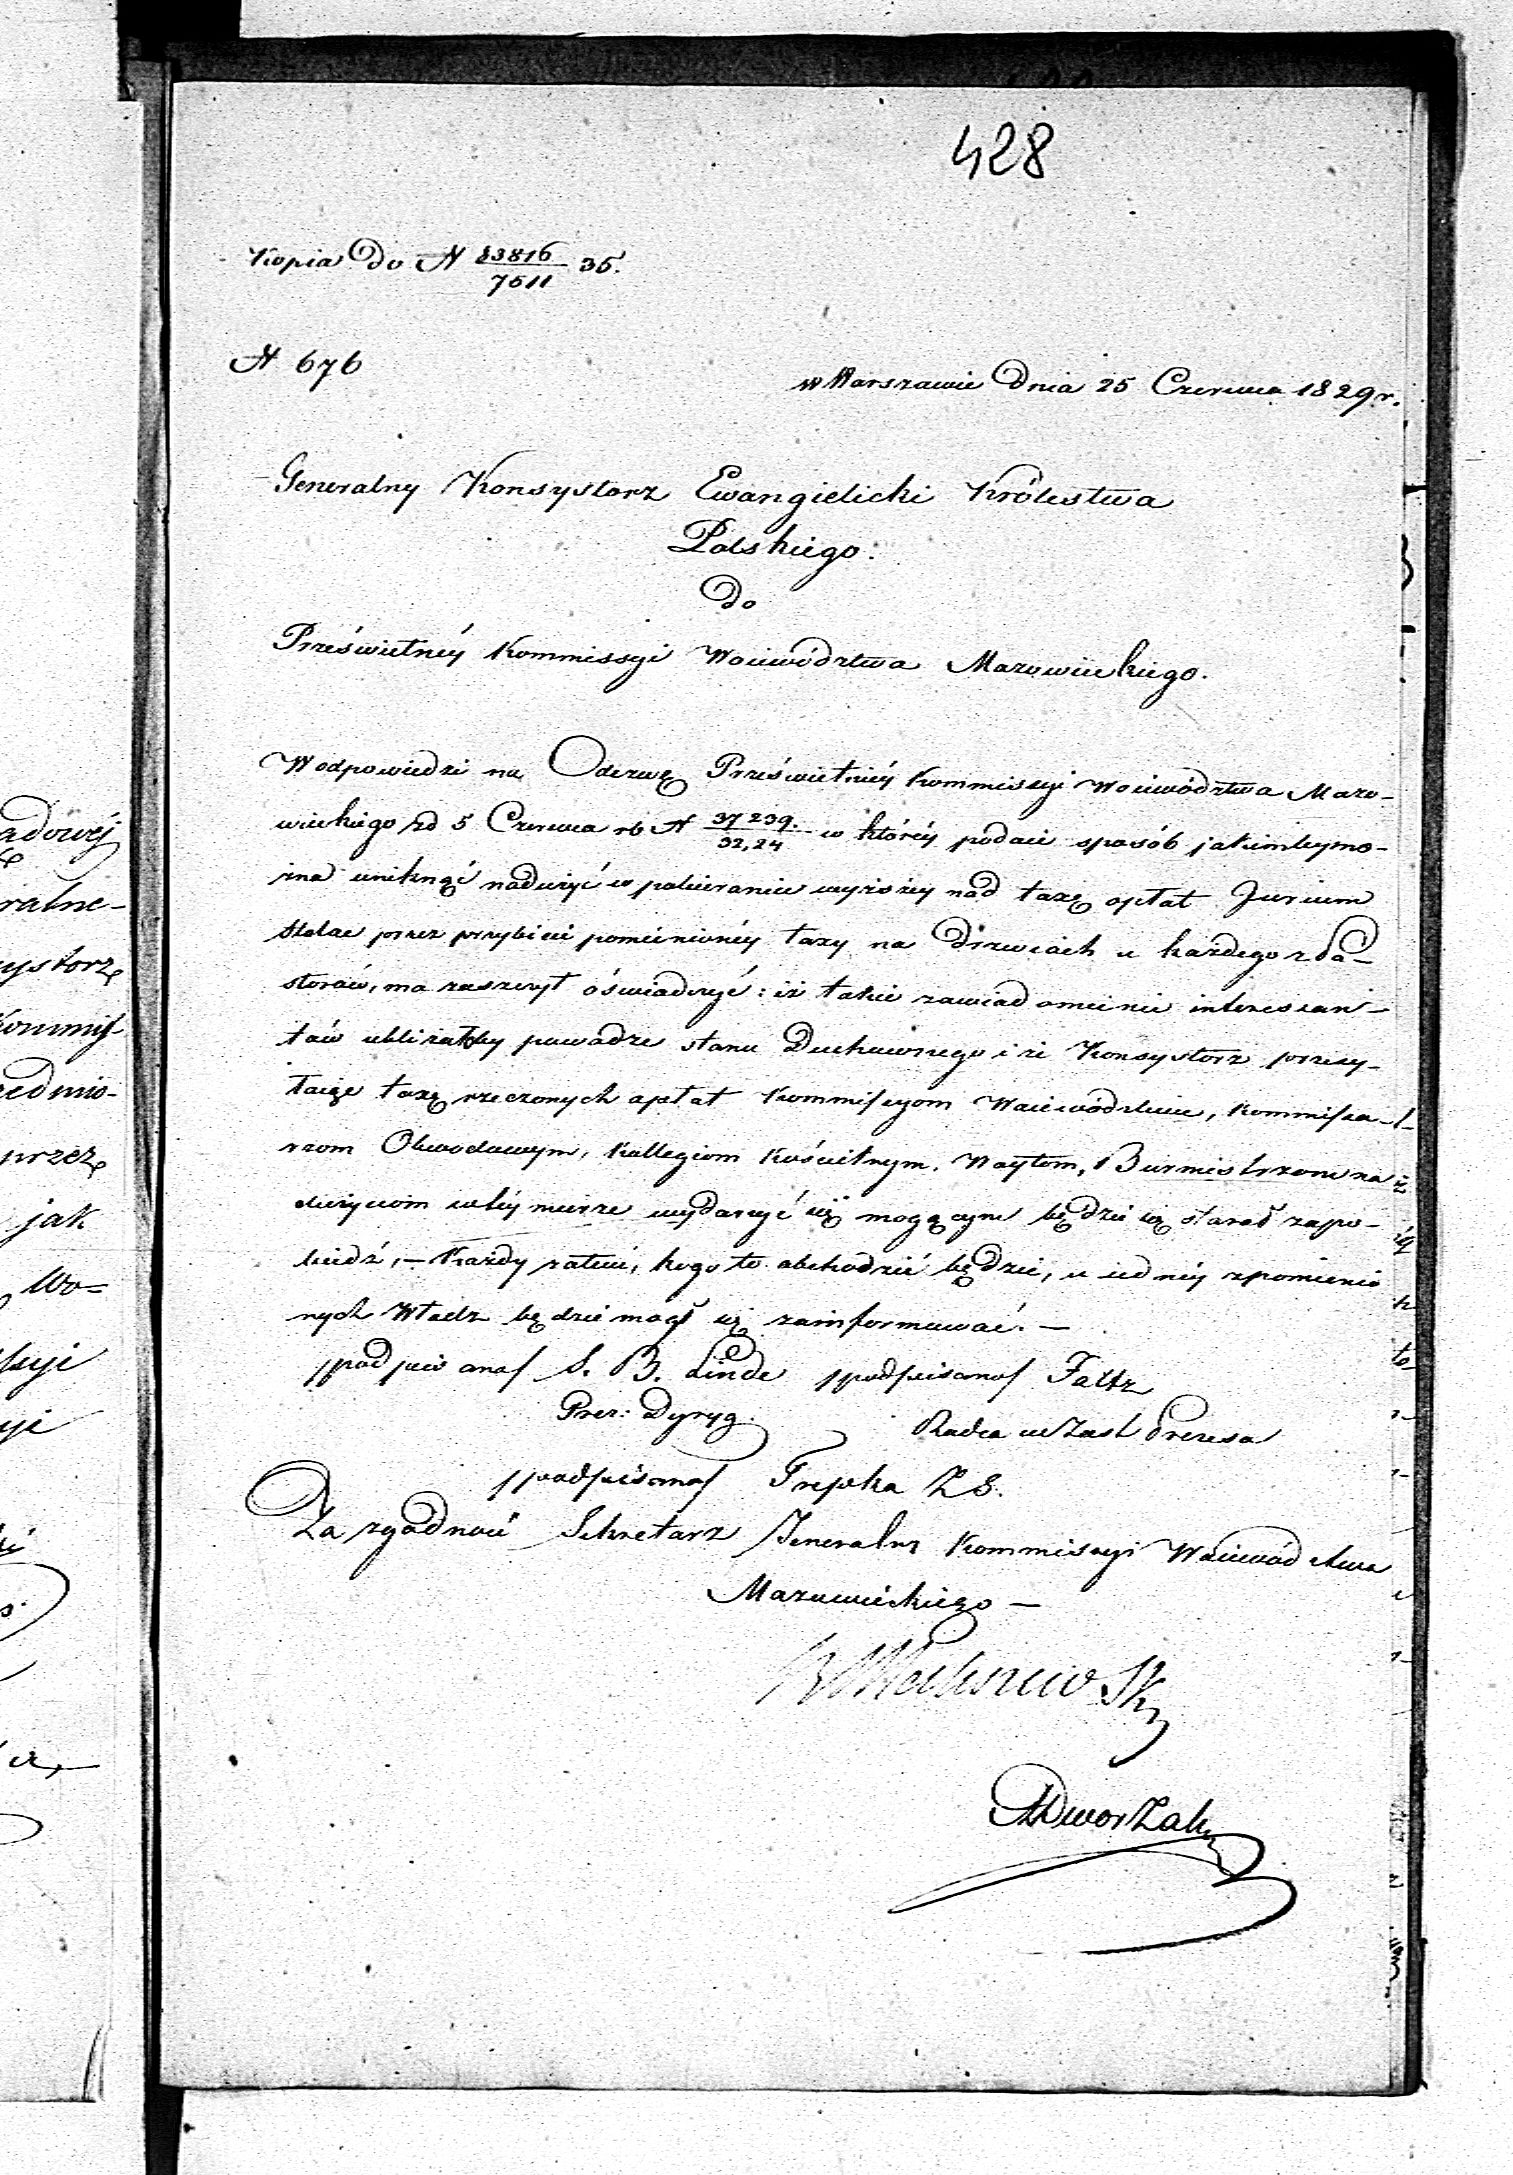 428
Kopia do N 83816/7511 35.
N 676
w Warszawie Dnia 25 Czerwca 1829 r.
Generalny Konsystorz Ewangielicki Królestwa
Polskiego.
do
Prześwietnéy Kommissyi Woiewództwa Mazowieckiego.
W odpowiedzi na Odezwę Prześwietnéy Kommissyi Woiewództwa Mazo-
wieckiego zd 5 Czerwca rb N 37239./32,24 w któréy podaie sposób jakimby mo-
żna uniknąć nadużyć w pobieraniu wyższey nad taxę opłat Jurium
Stolae przez przybicie pomienionéy taxy na drzwiach u każdego z Pa-
storów, ma zaszczyt oświadczyć: iż takie zawiadomienie interessan-
tów ubliżałoby powadze stanu Duchownego i że Konsystorz przesy-
łaiąc taxę rzeczonych opłat Kommissyom Woiewódzkim, Kommissa-
rzom Obwodowym, Kollegiom Kościelnym, Woytom, Burmistrzom na
dużyciom w téy mierze wydarzyć się mogącym będzie się starał zapo-
biedź, — Każdy zatem, kogo to obchodzić będzie, u iednéy z pomienio
nych Władz będzie mógł się zainformować. —
/podpisano/ S. B. Linde /podpisano/ Faltz
Prez: Dyryg. Radca w Zast Prezesa
/podpisano/ Trepka Z S.
Za zgodność Sekretarz Jeneralny Kommissyi Woiewództwa
Mazowieckiego —
Dworzak
adowéj
ralne-
ystorz
Kommiss
zedmio-
przez
jak
Wo-
ssyi
yi